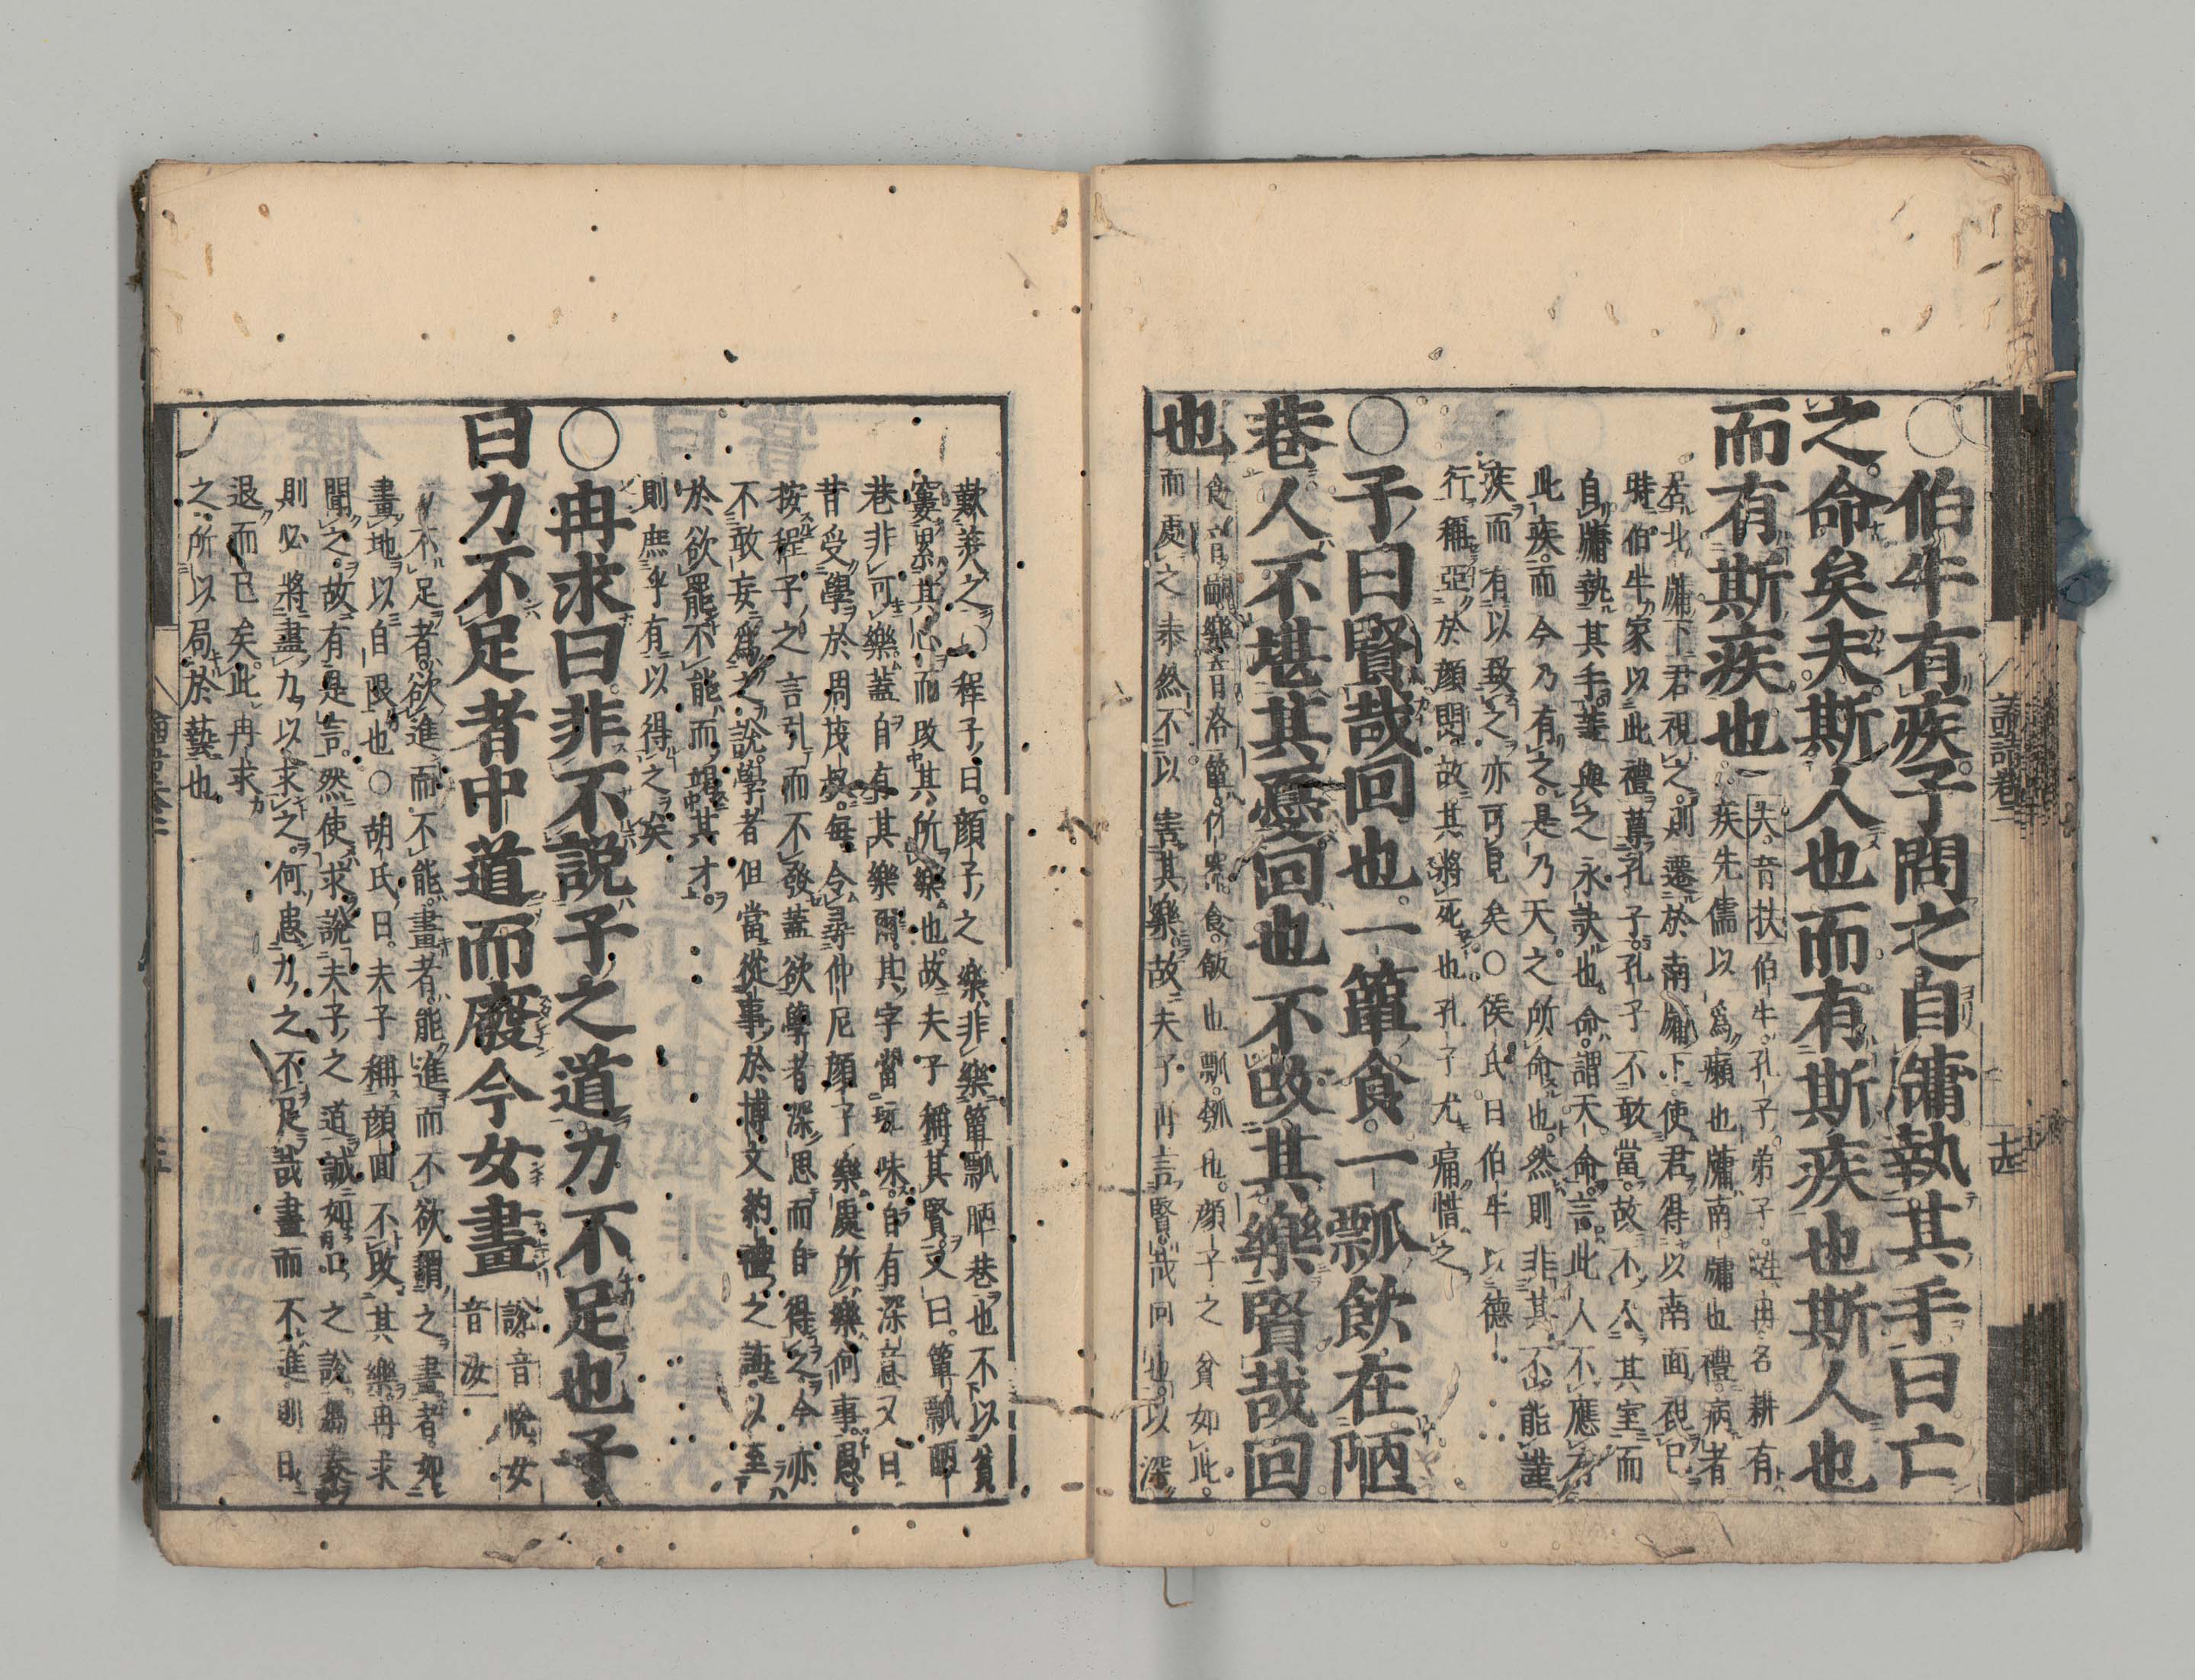 ○伯牛有疾子問之自牖執其手曰亡
之命矣夫斯人也而有斯疾也斯人也
而有斯疾也
夫音扶伯牛孔子弟子姓冉名耕有
疾先儒以爲癩也牖南牖也禮病者
居北牖下君視之則遷於南牖下使君得以南面視已
時伯牛家以此禮尊孔子孔子不敢當故不入其室而
自牖執其手蓋與之永訣也命謂天命言此人不應有
此疾而今乃有之是乃天之所命也然則非其不能謹
疾而有以致之亦可見矣○侯氏曰伯牛以德
行稱亞於顔閔故其將死也孔子尤痛惜之
○子曰賢哉回也一簞食一瓢飲在陋
巷人不堪其憂回也不改其樂賢哉回
也
食音嗣樂音洛簞竹器食飯也瓢瓠也顔子之貧如此
而處之泰然不以害其樂故夫子再言賢哉回也以深
歎美之○程子曰顔子之樂非樂簞瓢陋巷也不以貧
窶累其心而改其所樂也故夫子稱其賢又曰簞瓢陋
巷非可樂蓋自有其樂爾其字當玩味自有深意又曰
昔受學於周茂叔每令尋仲尼顔子樂處所樂何事愚
按程子之言引而不發蓋欲學者深思而自得之今亦
不敢妄爲之說學者但當從事於博文約禮之誨以至
於欲罷不能而竭其才
則庶乎有以得之矣
○冉求曰非不說子之道力不足也子
曰力不足者中道而廢今女畫
說音悅女
音汝
力不足者欲進而不能畫者能進而不欲謂之畫者如
畫地以自限也○胡氏曰夫子稱顔回不改其樂冉求
聞之故有是言然使求說夫子之道誠如口之說芻豢
則必將盡力以求之何患力之不足哉畫而不進則日
退而已矣此冉求
之所以局於藝也
論語卷三
十四